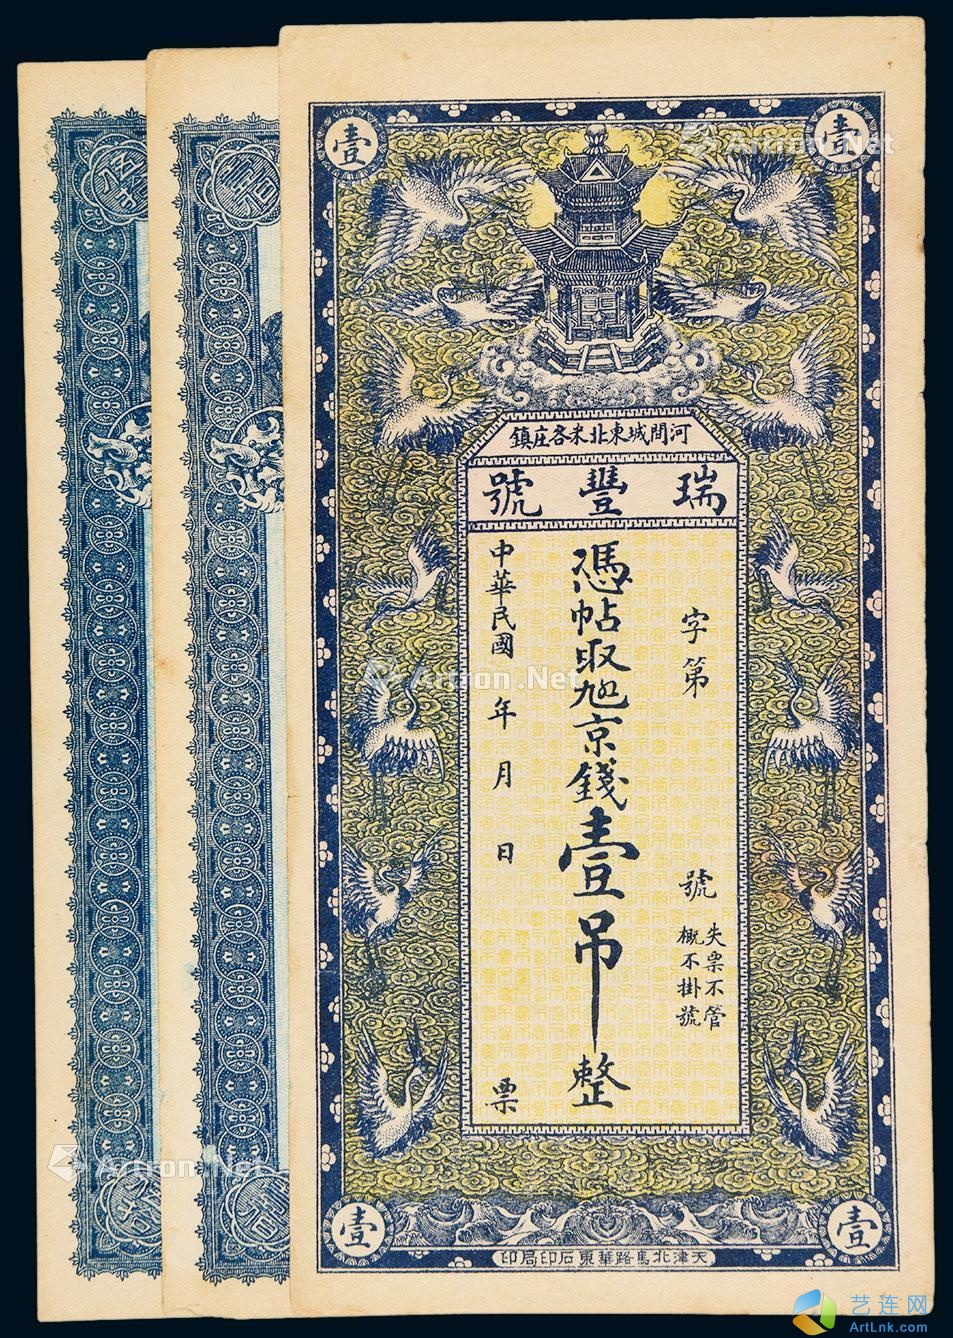 壹
壹
河間城東北米各庄鎮
瑞豐號
字第 號
失票不管
概不掛號
憑帖取旭京錢壹吊整
中華民國 年 月 日 票
壹
壹
天津北馬路華東石印局印
Artron.Net
Artron.Net
Artron.Net
艺连网
ArtLnk.com